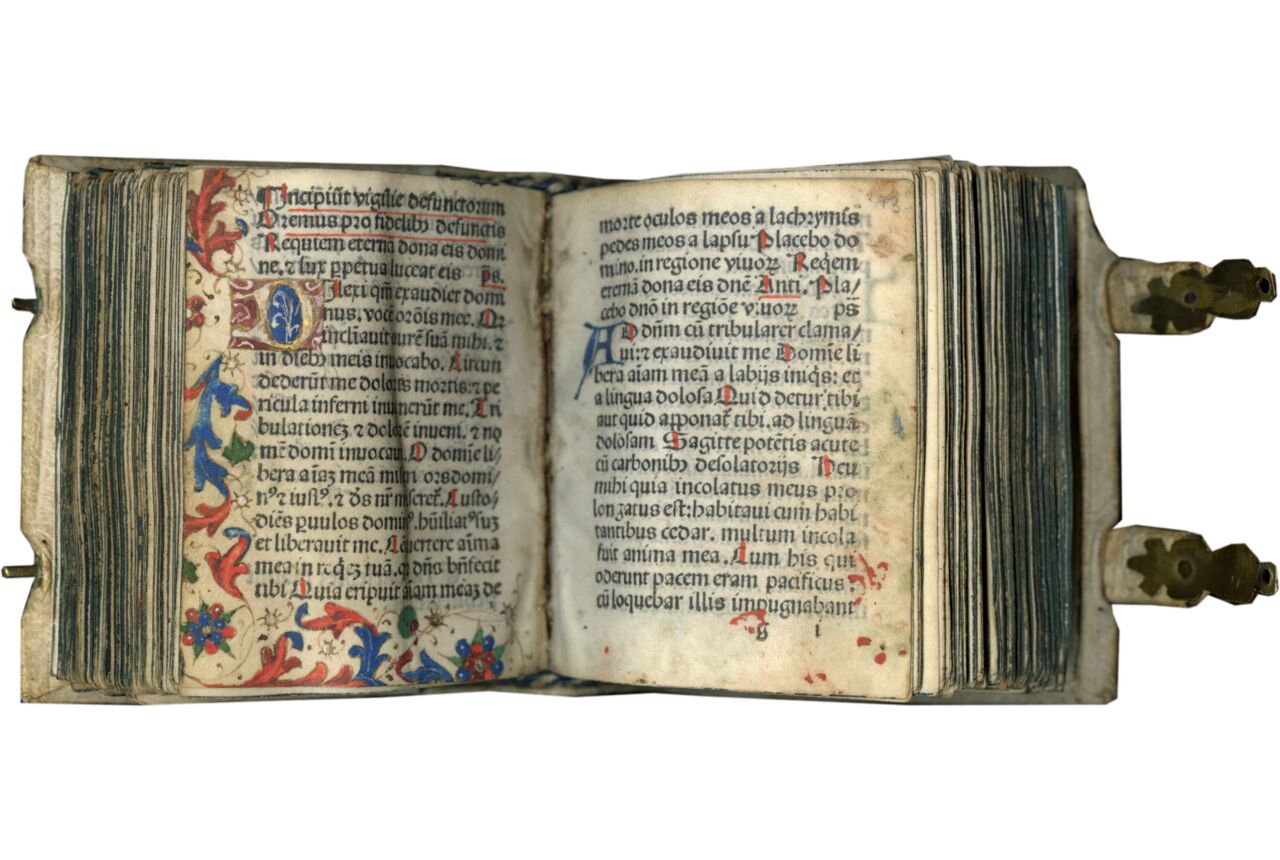 Incipiūt vigilie defunctorum
Oremus pro fidelibꝫ defunctis
Requiem eternā dona eis domi
ne. ⁊ lux ꝑpetua luceat eis ps.
Dilexi qm̄ exaudiet domi
nus. vocē orōis mee. Qr
inclīauit aurē suā mihi. ⁊
in diebꝫ meis inuocabo. Circun
dederūt me dolores mortis: ⁊ pe
ricula inferni inuenerūt me. Tri
bulationeꝫ ⁊ dolorē inueni. ⁊ no
mē domī inuocaui. O domīe li/
bera aīaꝫ meā miẜi orsdomi/
nꝰ ⁊ iustꝰ. ⁊ dꝰs nr̄ miseret̄. Custo/
diēs ꝑuulos domīꝰ. hūiliatꝰsuꝫ
et liberauit me. Cōuertere aīma
mea in req̄ꝫ tuā. q dn̄s bn̄fecit
tibi Quia eripuit aīam meaꝫ de
morte oculos meos a lachrymis
pedes meos a lapsu Placebo do
mino. in regione viuoꝝ Req̄em
eternā dona eis dn̄e Anti. Pla/
cebo dn̄o in regiōe viuoꝝ ps
AD dn̄m cū tribularer clama/
ui: ⁊ exaudiuit me Domīe li
bera aīam meā a labijs iniq̄s: et
a lingua dolosa Quid detur tibi
aut quid apponat̄ tibi. ad linguā
dolosam Sagitte potētis acute
cū carbonibꝫ desolatorijs Heu
mihi quia incolatus meus pro
longatus est: habitaui cum habi
tantibus cedar. multum incola
fuit anima mea. Cum his qui
oderunt pacem eram pacificus:
cū loquebar illis impugnabant
g i